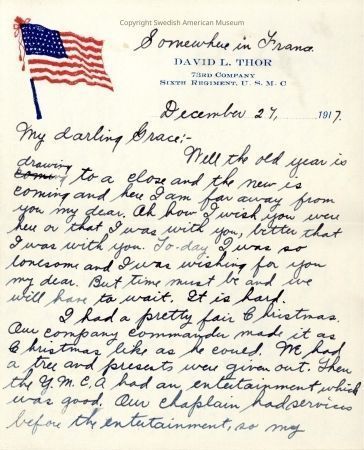 Copyright Swedish American Museum
Somewhere in France
DAVID L. THOR
73RD COMPANY
SIXTH REGIMENT, U. S. M. C
December 27, 1917.
My darling Grace;-
Well the old year is
drawing
coming to a close and the new is
coming and here I am far away from
you my dear. Ah how I wish you were
here or that I was with you, better that
I was with you. To-day I was so
lonesome and I was wishing for you
my dear. But time must be and we
will have to wait. It is hard.
I had a pretty fair Christmas.
Our company commander made it as
Christmas like as he could. We had
a tree and presents were given out. Then
the Y.M.C.A had an entertainment which
was good. Our chaplain had services
before the entertainment, so my